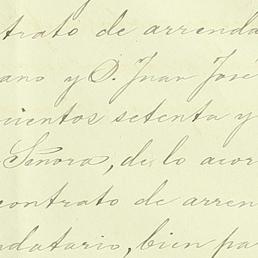 trato de arrenda
ano y D. Juan José
cuentos setenta y
Señora, de lo acor
contrato de arren
ndatario, bien pa